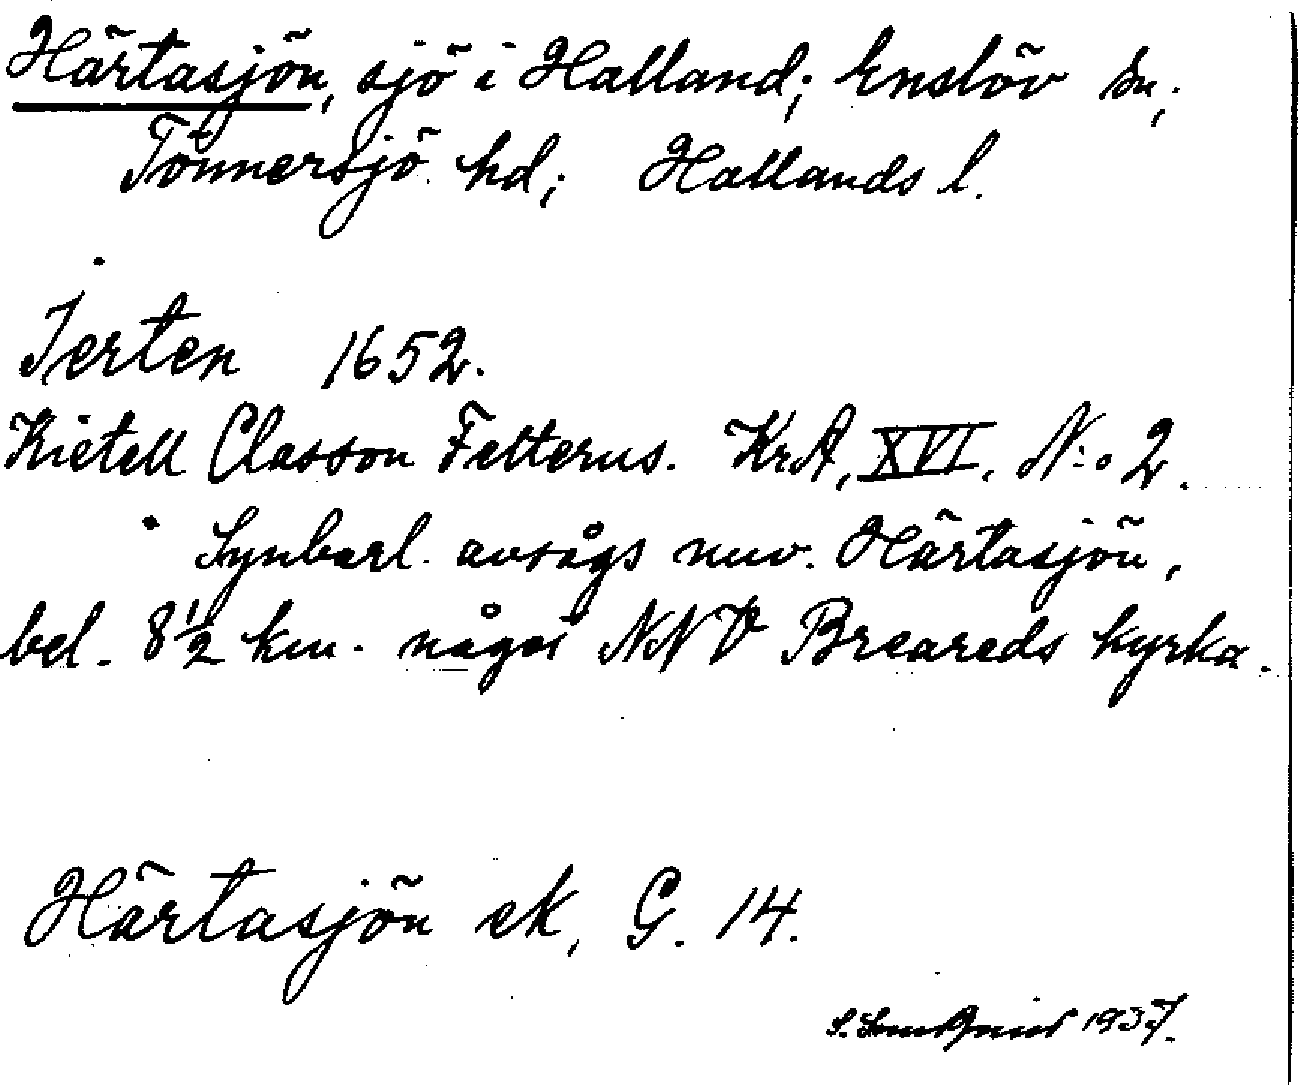 Härtasjön, sjö i Halland; Enslöv sn;
Tönnersjö hd; Hallands l.
Ierten 1652.
Kietell Classon Felterus. KrA, XVI. N:o 2.
Synbarl. avsågs nuv. Härtasjön,
bel. 8 1/2 km. något NNV Breareds kyrka.
Härtasjön ek, G. 14.
1937.